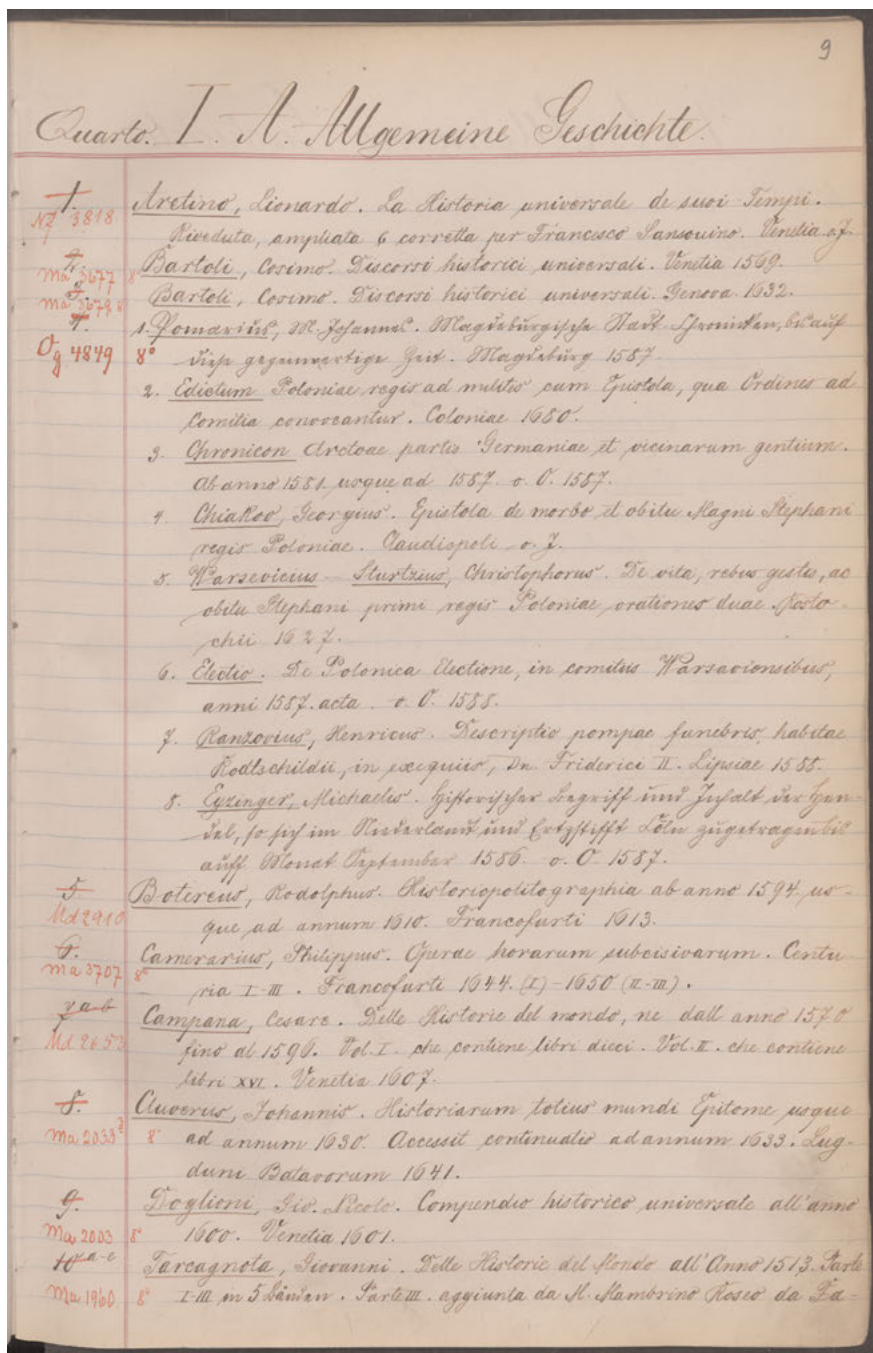 9
Quarto. I. A. Allgemeine Geschichte.
1. Aretino, Lionardo. La Historia universale de suoi Tempi.
3818 Riveduta, ampliata & corretta per Francesco Sansouino. Venetia o. J.
2. Bartoli, Cosimo. Discorsi historici universali. Venetia 1569.
Ma 3677 8°
3. Bartoli, Cosimo. Discorsi historici universali. Genova 1632.
Ma 3679 8°
4. 1. Pomarius, M. Johannes. Magdeburgische Stadt Chronicken, bis auff
Og 4849 8° diese gegenwertige Zeit. Magdeburg 1587.
2. Edictum Poloniae regis ad militis cum Epistola, qua Ordines ad
Comitia convocantur. Coloniae 1680.
3. Chronicon Arctoae partis Germaniae et vicinarum gentium.
Ab anno 1581 usque ad 1587. o. O. 1587.
4. Chiakoo, Georgius. Epistola de morbo et obitu Magni Stephani
regis Poloniae. Claudiopoli o. J.
5. Warsevicius - Sturtzius, Christophorus. De vita, rebus gestis, ac
obitu Stephani primi regis Poloniae, orationes duae. Rosto-
chii 1627.
6. Electio. De Polonica Electione, in comitiis Warsaviensibus,
anni 1587. acta. o. O. 1588.
7. Ranzovius, Henricus. Descriptio pompae funebris, habitae
Rodtschildii, in exequiis, Dn. Friderici II. Lipsiae 1588.
8. Eyzinger, Michaelis. Historischer Begriff und Inhalt der Hen-
del, so sich im Niederlandt und Ertzstifft Cöln zugetragen bis
auff Monat September 1586. o. O. 1587.
5. Botereus, Rodolphus. Historiopolitographia ab anno 1594 us-
Md 2910 que ad annum 1610. Francofurti 1613.
6. Camerarius, Philippus. Operae horarum subcisivarum. Centu
Ma 3707 8° ria I-III. Francofurti 1644. (I) - 1650 (II-III).
7 a-b Campana, Cesare. Delle Historie del mondo, ne dall anno 1570
Md 2653 fino al 1596. Vol. I. che contiene libri dieci. Vol. II. che contiene
libri XVI. Venetia 1607.
8. Cluverus, Johannis. Historiarum totius mundi Epitome usque
Ma 2033 8° ad annum 1630. Accessit continuatio ad annum 1633. Lug-
duni Batavorum 1641.
9. Doglioni, Gio. Nicolo. Compendio historico universale all'anno
Ma 2003 8° 1600. Venetia 1601.
10 a-e Tarcagnota, Giovanni. Delle Historie del Mondo all'Anno 1513. Parte
Ma 1960 8° I-III in 5 Bänden. Parte III. aggiunta da M. Mambrino Roseo da Fa-